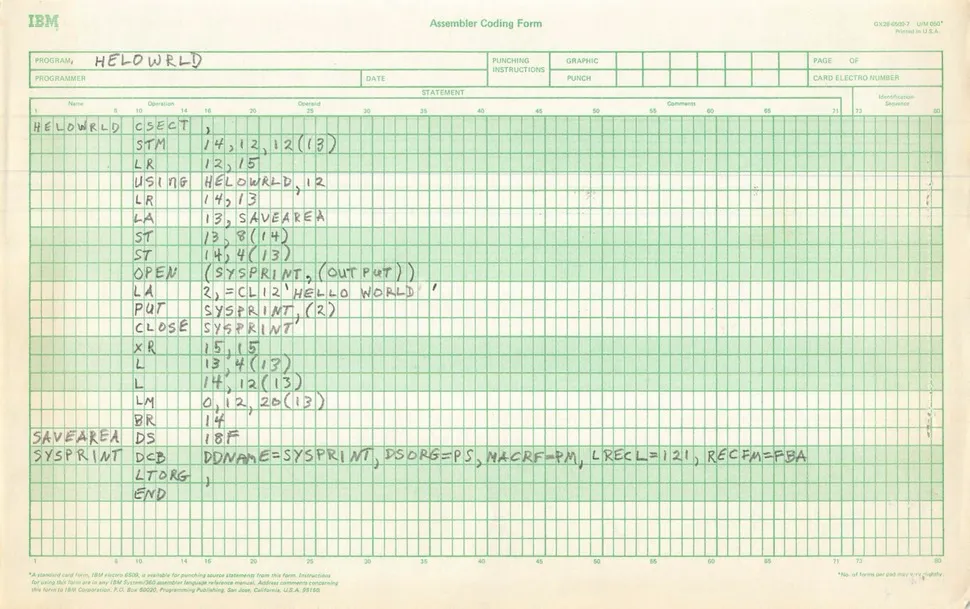 IBM
Assembler Coding Form
GX28-6509-7 U/M 050*
Printed in U.S.A.
PROGRAM HELOWRLD PUNCHING INSTRUCTIONS GRAPHIC PAGE OF
PROGRAMMER DATE PUNCH CARD ELECTRO NUMBER
STATEMENT
Name Operation Operand Comments Identification Sequence
1 8 10 14 16 20 25 30 35 40 45 50 55 60 65 71 73 80
HELOWRLD CSECT ,
STM 14,12,12(13)
LR 12,15
USING HELOWRLD,12
LR 14,13
LA 13,SAVEAREA
ST 13,8(14)
ST 14,4(13)
OPEN (SYSPRINT,(OUTPUT))
LA 2,=CL12'HELLO WORLD '
PUT SYSPRINT,(2)
CLOSE SYSPRINT
XR 15,15
L 13,4(13)
L 14,12(13)
LM 0,12,20(13)
BR 14
SAVEAREA DS 18F
SYSPRINT DCB DDNAME=SYSPRINT,DSORG=PS,MACRF=PM,LRECL=121,RECFM=FBA
LTORG ,
END
1 8 10 14 16 20 25 30 35 40 45 50 55 60 65 71 73 80
*A standard card form, IBM electro 6509, is available for punching source statements from this form. Instructions
for using this form are in any IBM System/360 assembler language reference manual. Address comments concerning
this form to IBM Corporation, P.O. Box 50020, Programming Publishing, San Jose, California, U.S.A. 95150
*No. of forms per pad may vary slightly